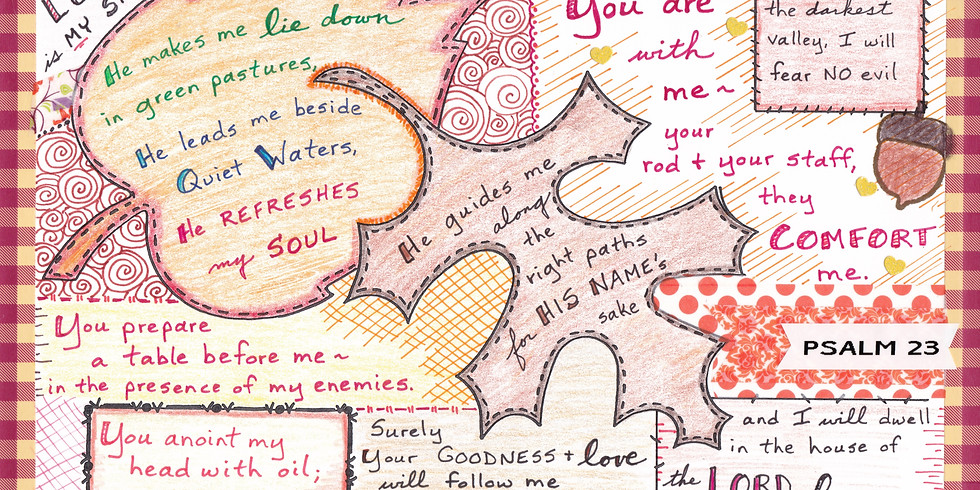 is MY
He makes me lie down
in green pastures,
He leads me beside
Quiet Waters,
He REFRESHES
my SOUL
He guides me
along
the
right paths
for HIS NAME's
sake
the darkest
valley, I will
fear NO evil
You are
with
me~
your
rod + your staff,
they
COMFORT
me.
You prepare
a table before me~
in the presence of my enemies.
PSALM 23
You anoint my
head with oil;
Surely
Your GOODNESS + love
will follow me
and I will dwell
in the house of
the LORD